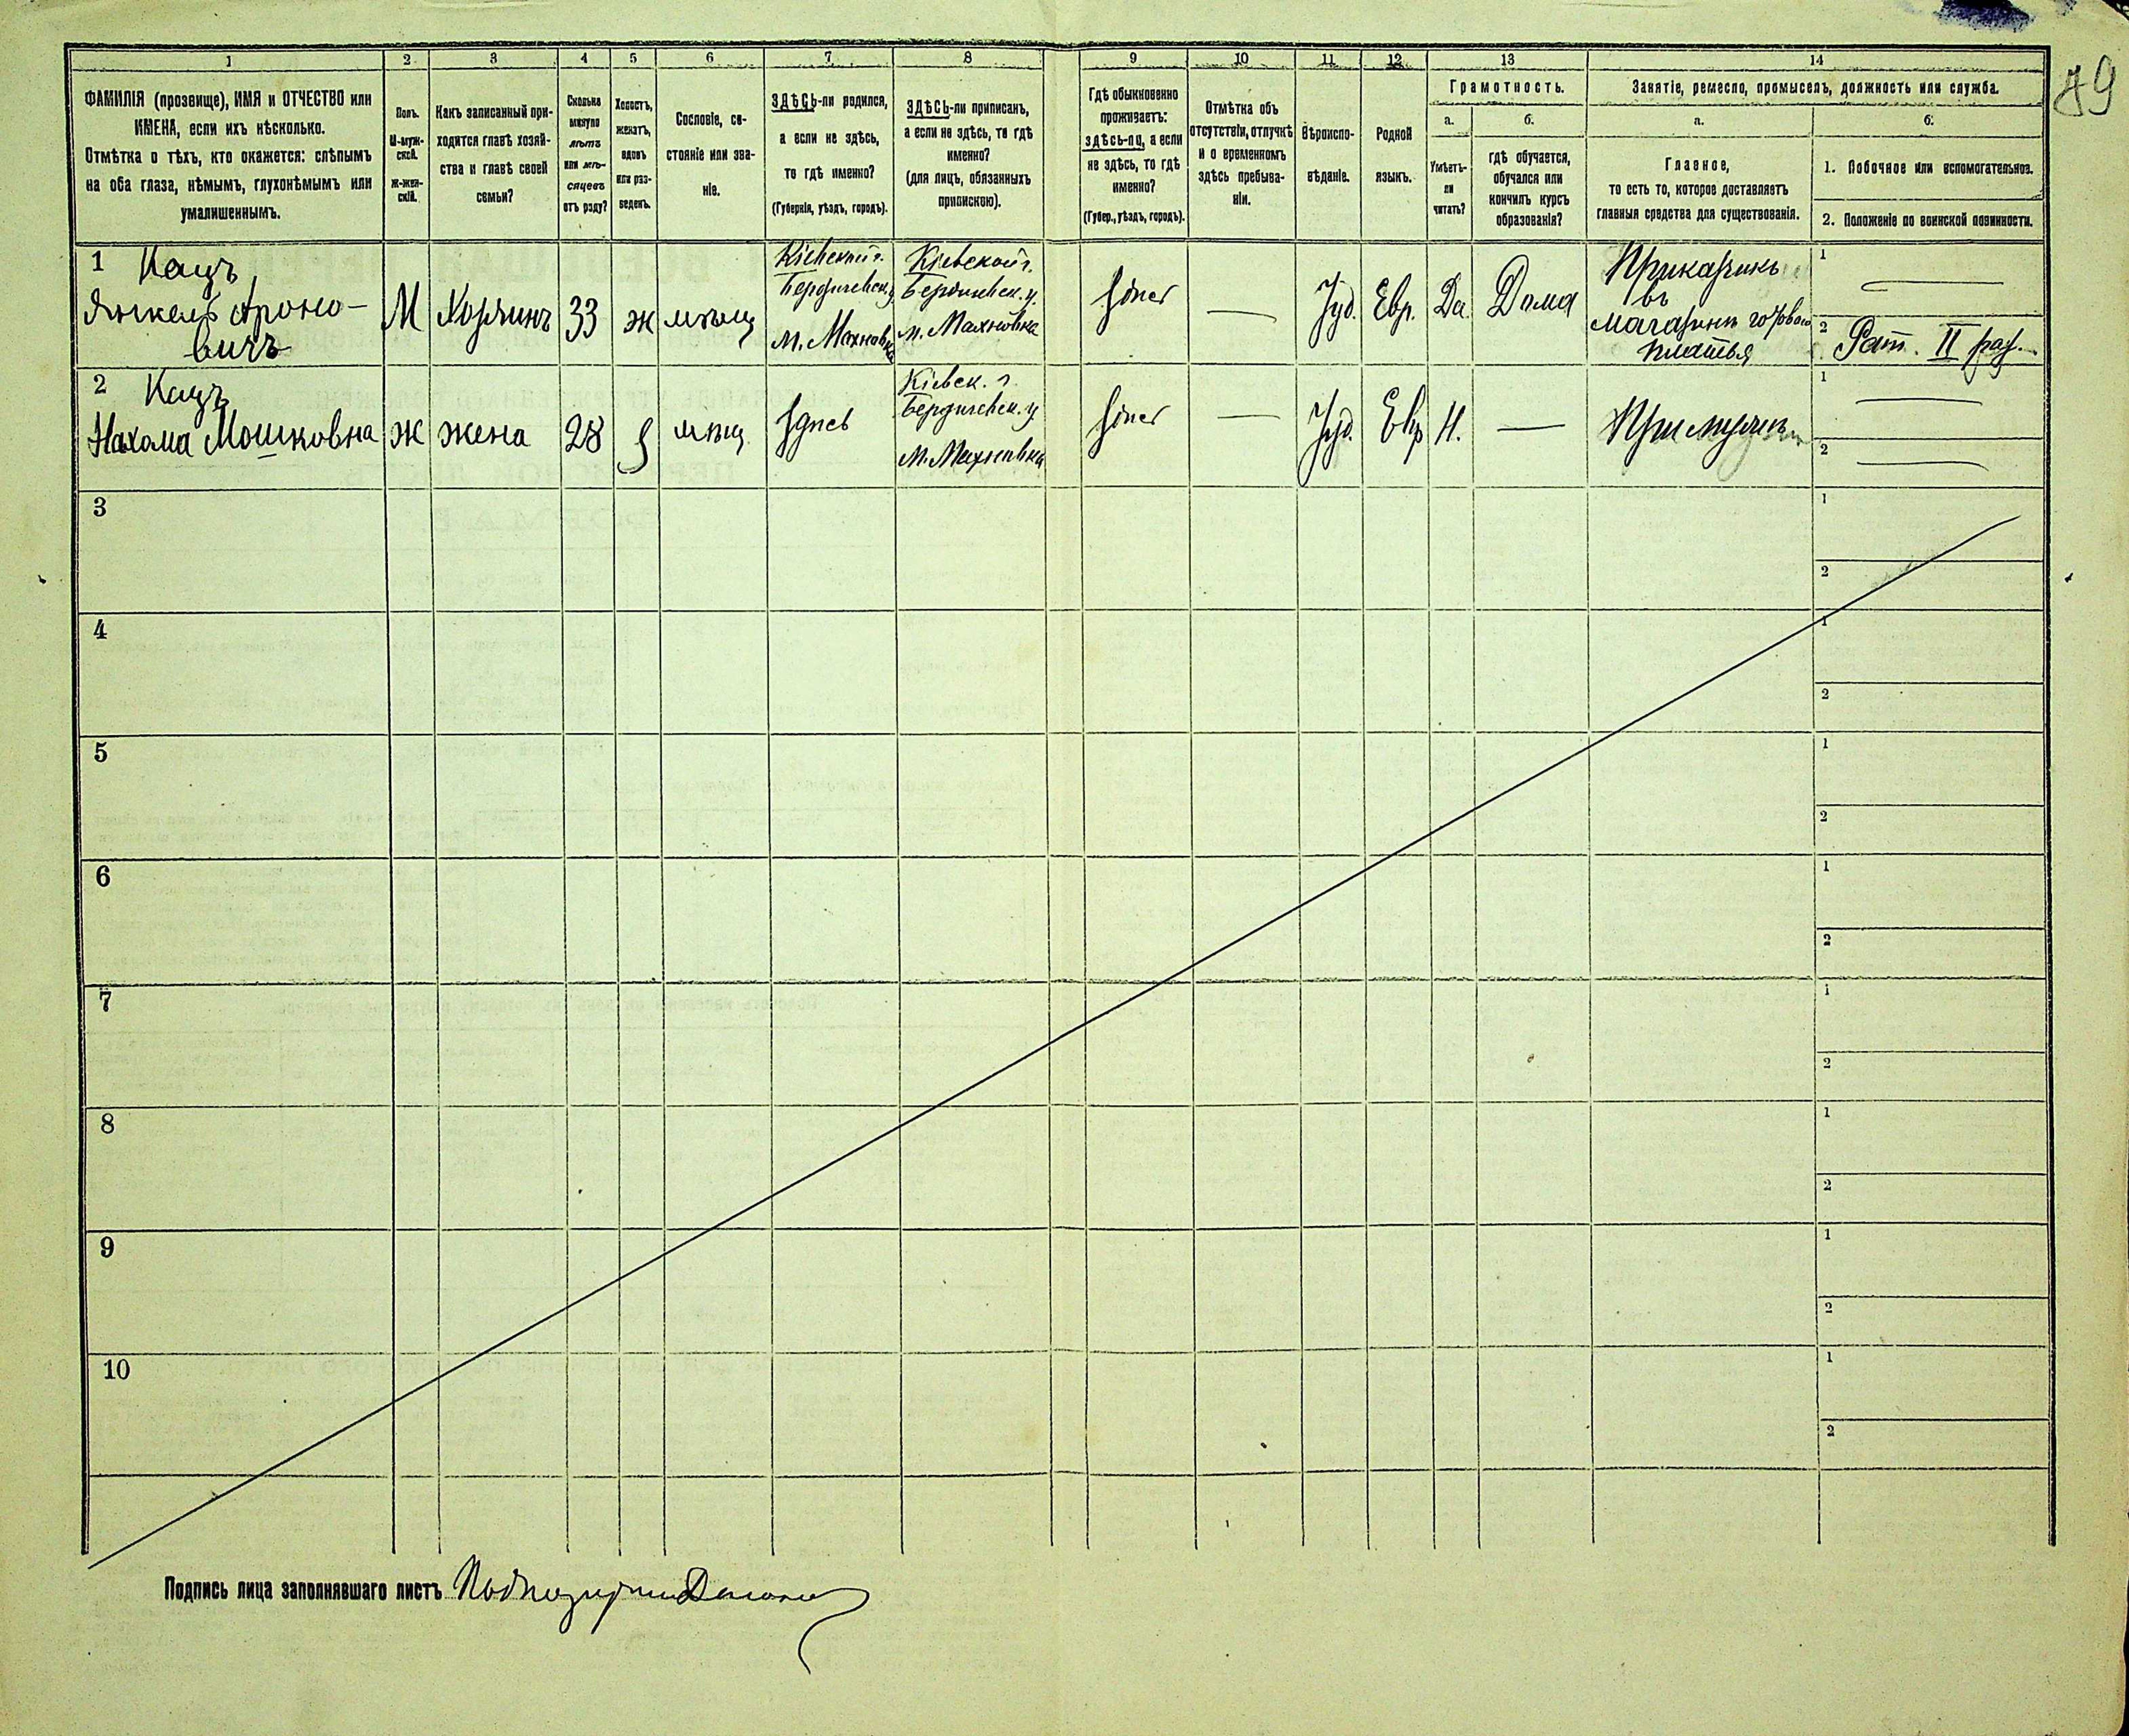 79
1
2
3
4
5
6
7
8
9
10
11
12
13
14
ФАМИЛІЯ (прозвище), ИМЯ и ОТЧЕСТВО или
ИМЕНА, если ихъ нѣсколько.
Отмѣтка о тѣхъ, кто окажется: слѣпымъ
на оба глаза, нѣмымъ, глухонѣмымъ или
умалишеннымъ.
Полъ.
М-муж-
ской.
Ж-жен-
скій.
Какъ записанный при-
ходится главѣ хозяй-
ства и главѣ своей
семьи?
Сколько
минуло
лѣтъ
или мѣ-
сяцевъ
отъ роду?
Холостъ,
женатъ,
вдовъ
или раз-
веденъ.
Сословіе, со-
стояніе или зва-
ніе.
ЗДѢСЬ-ли родился,
а если не здѣсь,
то гдѣ именно?
(Губернія, уѣздъ, городъ).
ЗДѢСЬ-ли приписанъ,
а если не здѣсь, то гдѣ
именно?
(для лицъ, обязанныхъ
припискою).
Гдѣ обыкновенно
проживаетъ:
здѣсь-ли, а если
не здѣсь, то гдѣ
именно?
(Губер., уѣздъ, городъ).
Отмѣтка объ
отсутствіи, отлучкѣ
и о временномъ
здѣсь пребыва-
ніи.
Вѣроиспо-
вѣданіе.
Родной
языкъ.
Грамотность.
а.
Умѣетъ-
ли
читать?
б.
гдѣ обучается,
обучался или
кончилъ курсъ
образованія?
Занятіе, ремесло, промыселъ, должность или служба.
а.
Главное,
то есть то, которое доставляетъ
главныя средства для существованія.
б.
1. Побочное или вспомогательное.
2. Положеніе по воинской повинности.
1 Кацъ
Янкель Ароно-
вичъ
М
Хозяинъ
33
ж
мѣщ
Кіевской г.
Бердичевск. у
м. Махновка
Кіевской г.
Бердичевск. у.
м. Махновка
Здѣсь
—
Іуд.
Евр.
Да
Дома
Приказчикъ
въ
магазинѣ готоваго
платья
1 —
2 Рат. II раз.
2 Кацъ
Нахама Мошковна
ж
жена
28
з
мѣщ
Здѣсь
Кіевск. г.
Бердичевск. у
м. Махновка
Здѣсь
—
Іуд.
Евр
Н.
—
При мужѣ
1 —
2 —
3
1
2
4
1
2
5
1
2
6
1
2
7
1
2
8
1
2
9
1
2
10
1
2
Подпись лица заполнявшаго листъ